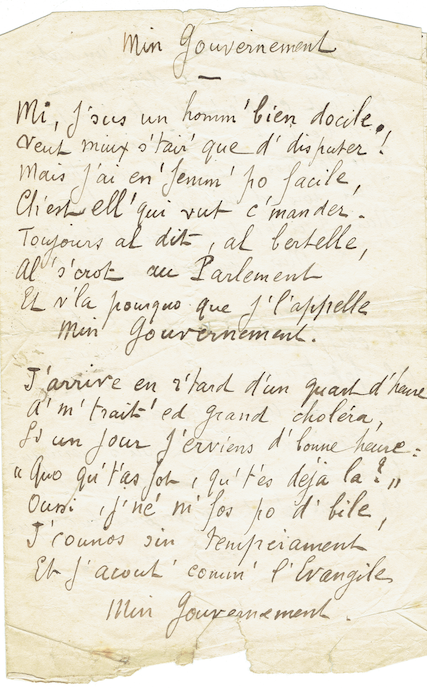 Min Gouvernement
Mi, j'sus un homm' bien docile,
Veut miux s'tair' que d' disputer !
Mais j'ai en' femm' po facile,
Ch'est ell' qui vut c'mander.
Toujours al dit, al bertelle,
Al' s'crot au Parlement
Et v'la pourquo que j' l'appelle
Min Gouvernement.
J'arrive en r'tard d'un quart d'heure
A' m' trait' ed grand choléra,
Si un jour j'erviens d' bonne heure :
" Quo qu't'as fot, qu't'es déjà la ? "
Oussi, j'né m' fos po d' bile,
J'counos sin tempériament
Et j'acout' comm' l'Evangile
Min Gouvernement.